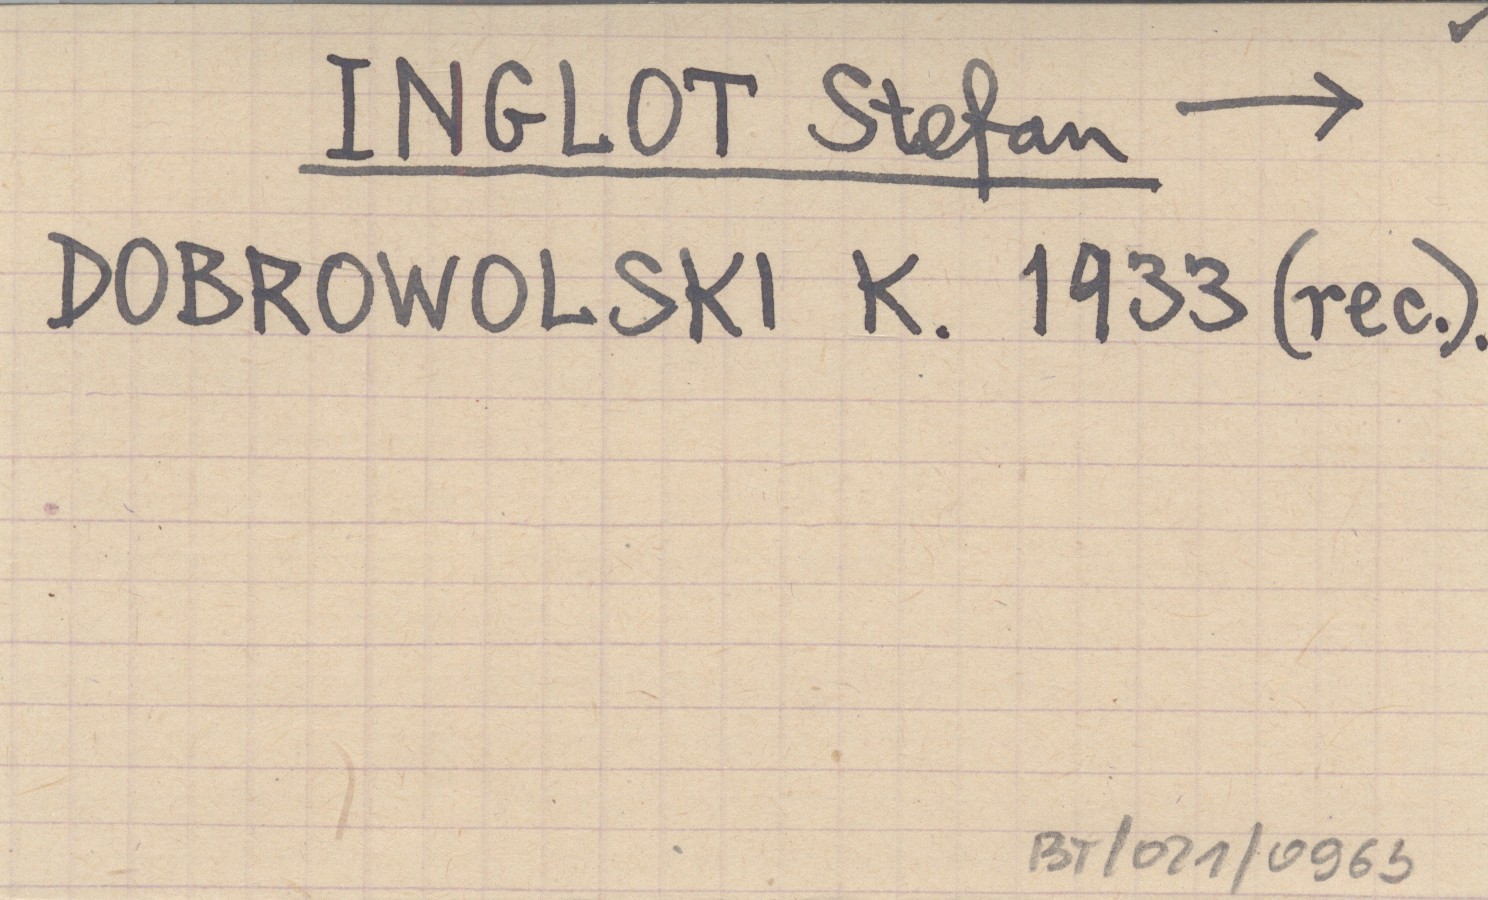 ✓
INGLOT Stefan →
DOBROWOLSKI K. 1933 (rec.).
BT/021/0963